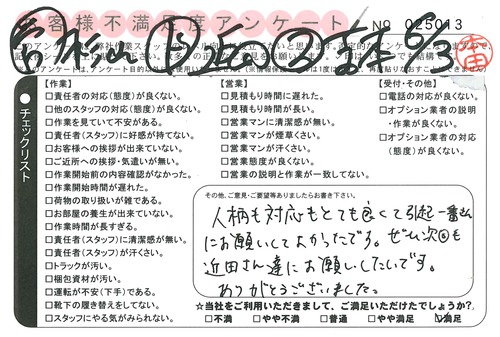 お客様不満足度アンケート
No 025013
6/3
チェックリスト
【作業】
□責任者の対応(態度)が良くない。
□他のスタッフの対応(態度)が良くない。
□作業を見ていて不安がある。
□責任者(スタッフ)に好感が持てない。
□お客様への挨拶が出来ていない。
□ご近所への挨拶・気遣いが無い。
□作業開始前の内容確認がなかった。
□作業開始時間が遅れた。
□荷物の取り扱いが雑である。
□お部屋の養生が出来ていない。
□作業時間が長すぎる。
□責任者(スタッフ)に清潔感が無い。
□責任者(スタッフ)が汗くさい。
□トラックが汚い。
□梱包資材が汚い。
□運転が不安(下手)である。
□靴下の履き替えをしてない。
□スタッフにやる気がみられない。
【営業】
□見積もり時間に遅れた。
□見積もり時間が長い。
□営業マンに清潔感が無い。
□営業マンが煙草くさい。
□営業マンが汗くさい。
□営業態度が良くない。
□営業の説明と作業が一致してない。
【受付・その他】
□電話の対応(態度)が良くない。
□オプション業者の説明
・作業が良くない。
□オプション業者の対応
(態度)が良くない。
その他、ご意見・ご要望等ありましたらお書き下さい。
人柄も対応もとても良くて引越一番さん
にお願いしてよかったです。ぜひ次回も
近田さん達にお願いしたいです。
ありがとうございました。
★当社をご利用いただきまして、ご満足いただけたでしょうか?
□不満 □やや不満 □普通 □やや満足 ☑満足